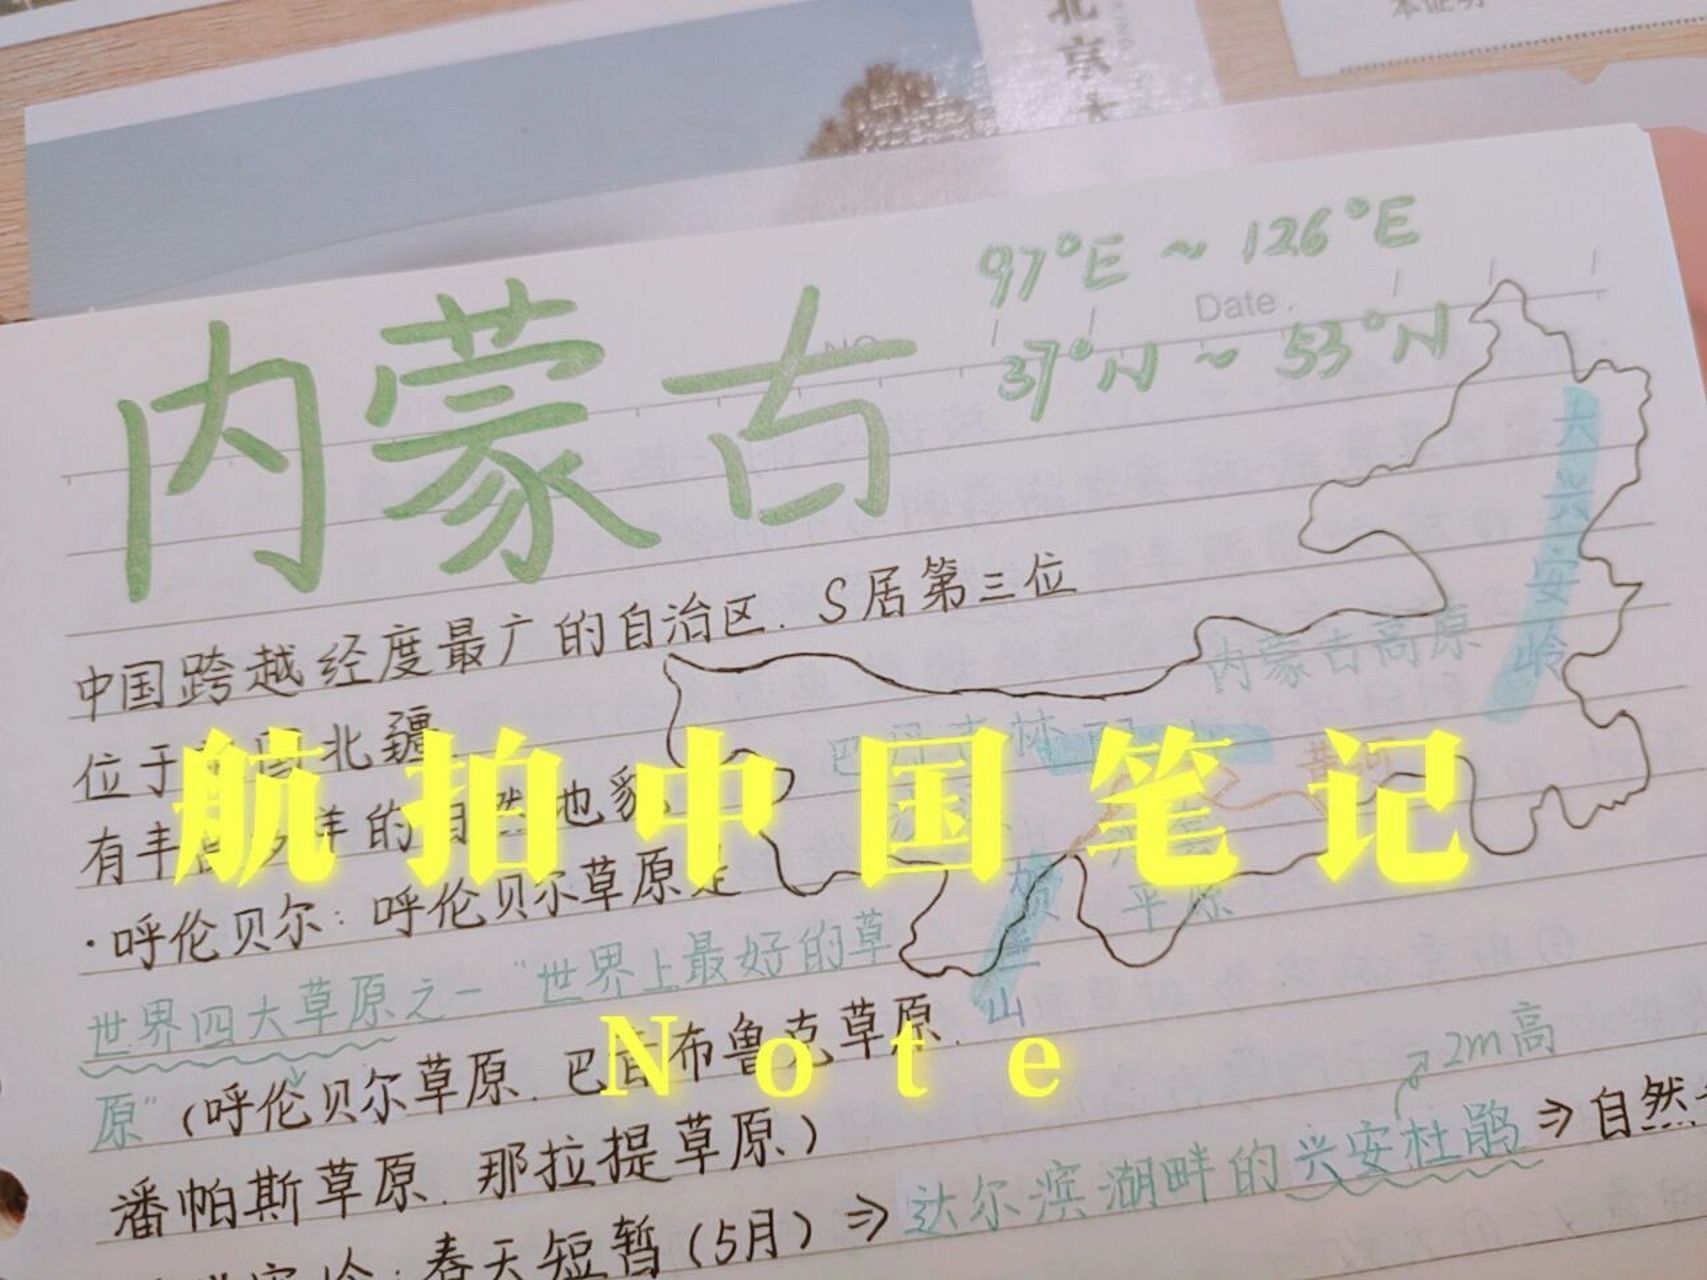 北京大
本证明
97°E ~ 126°E
Date.
NO
37°N ~ 53°N
内蒙古
大兴安岭
中国跨越经度最广的自治区. S居第三位
内蒙古高原
位于中国北疆
巴丹吉林
黄河
航拍中国笔记
有丰富多样的自然地貌
平原
·呼伦贝尔: 呼伦贝尔草原是
贺兰山
世界四大草原之一 “世界上最好的草
Note
原” (呼伦贝尔草原. 巴音布鲁克草原.
2m高
潘帕斯草原. 那拉提草原.)
春天短暂 (5月) ⇒ 达尔滨湖畔的兴安杜鹃 ⇒ 自然